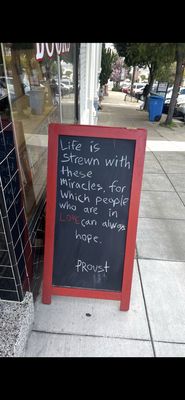 BOOKS
Life is
strewn with
these
miracles, for
which people
who are in
Love can always
hope.
PROUST